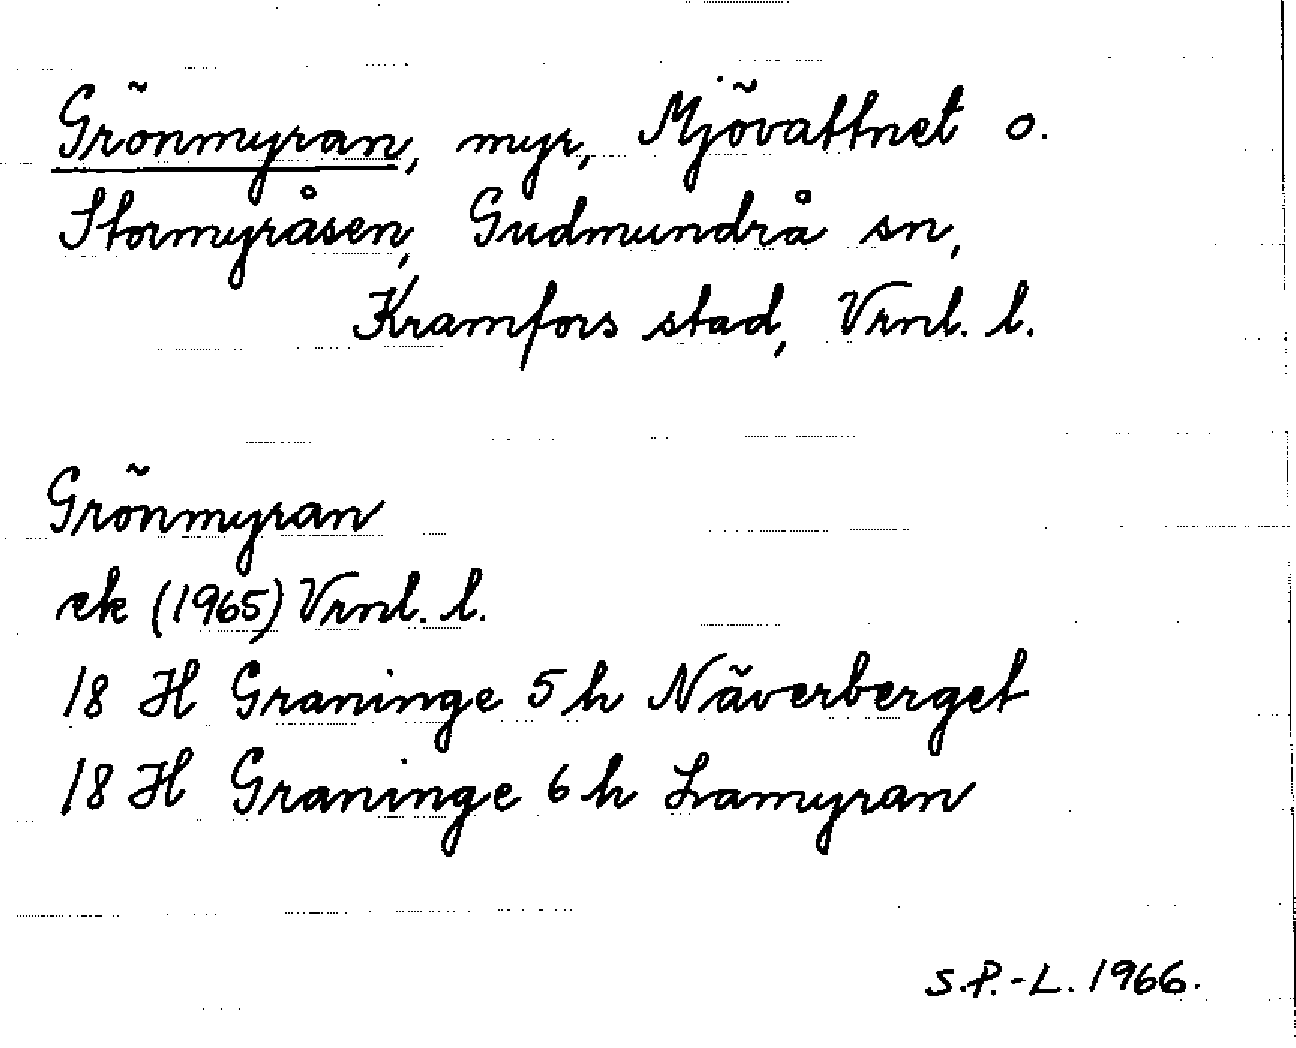 Grönmyran, myr, Mjövattnet o.
Stormyråsen, Gudmundrå sn,
Kramfors stad, Vrnl. l.
Grönmyran
ek (1965) Vrnl. l.
18 H Graninge 5 h Näverberget
18 H Graninge 6 h Lamyran
S.P.-L. 1966.